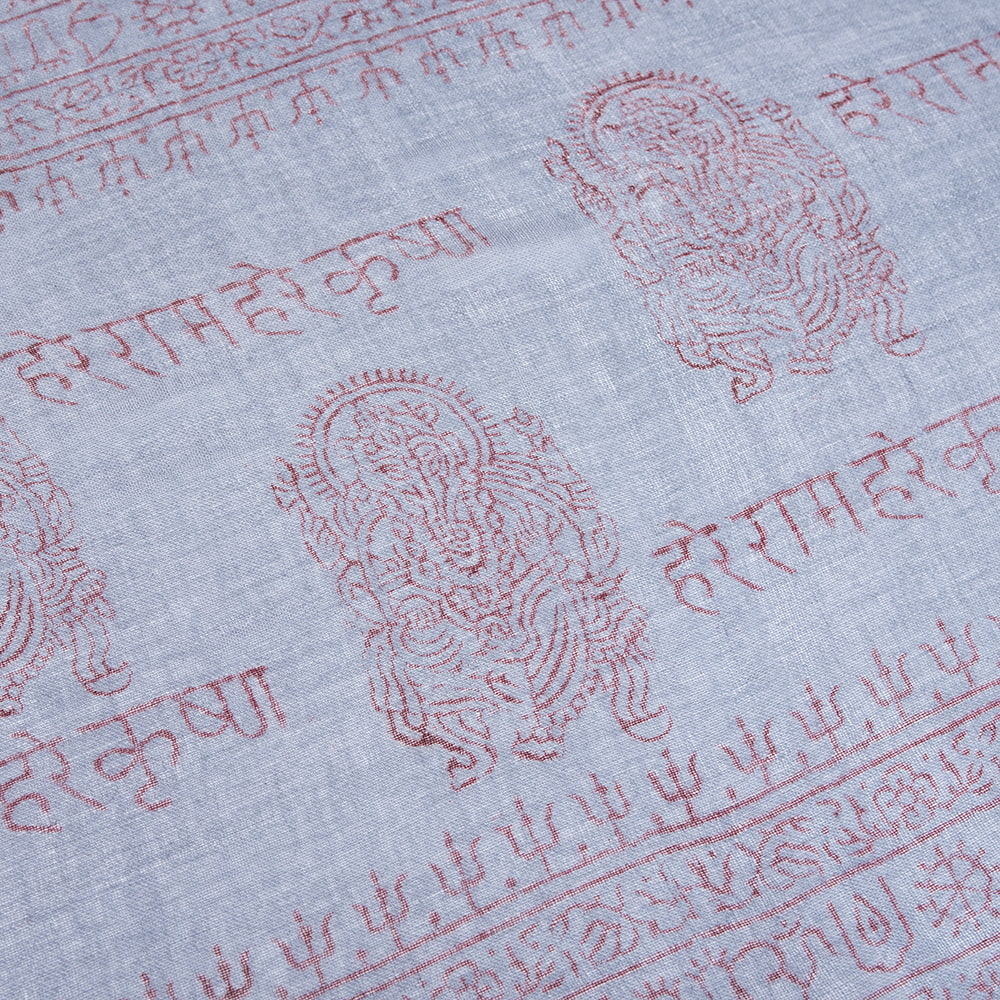 हरे राम
हरे राम हरे कृष्णा
हरे राम हरे कृ
हरे कृष्णा